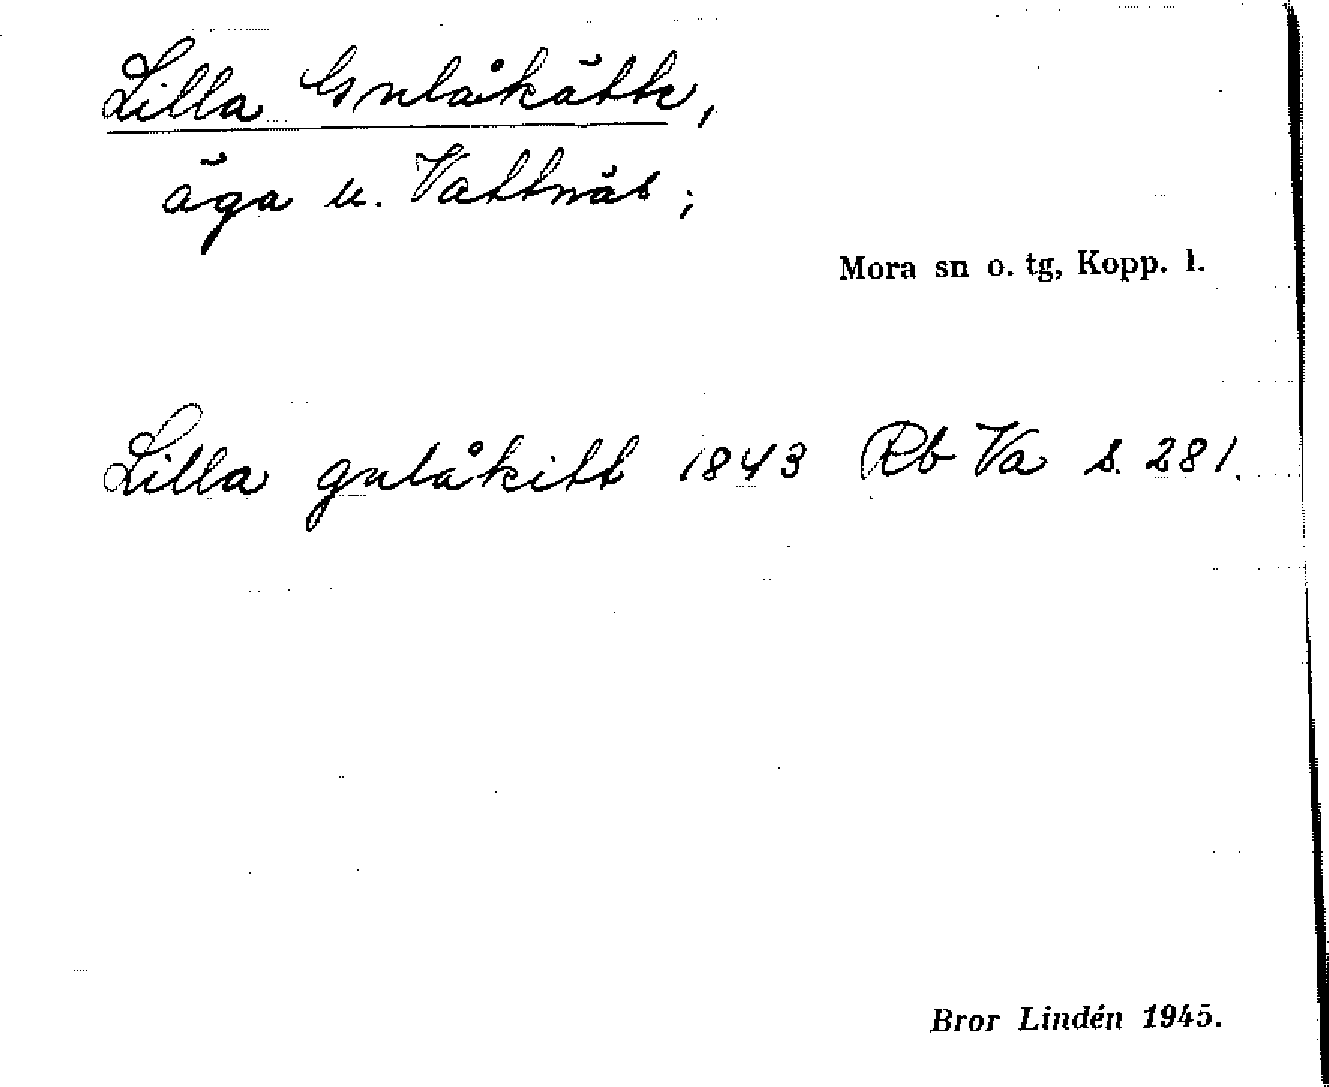 Lilla Gulåkätte,
äga u. Vattnäs;
Mora sn o. tg, Kopp. l.
Lilla gulåkitt 1843 Rb Va s. 281.
Bror Lindén 1945.